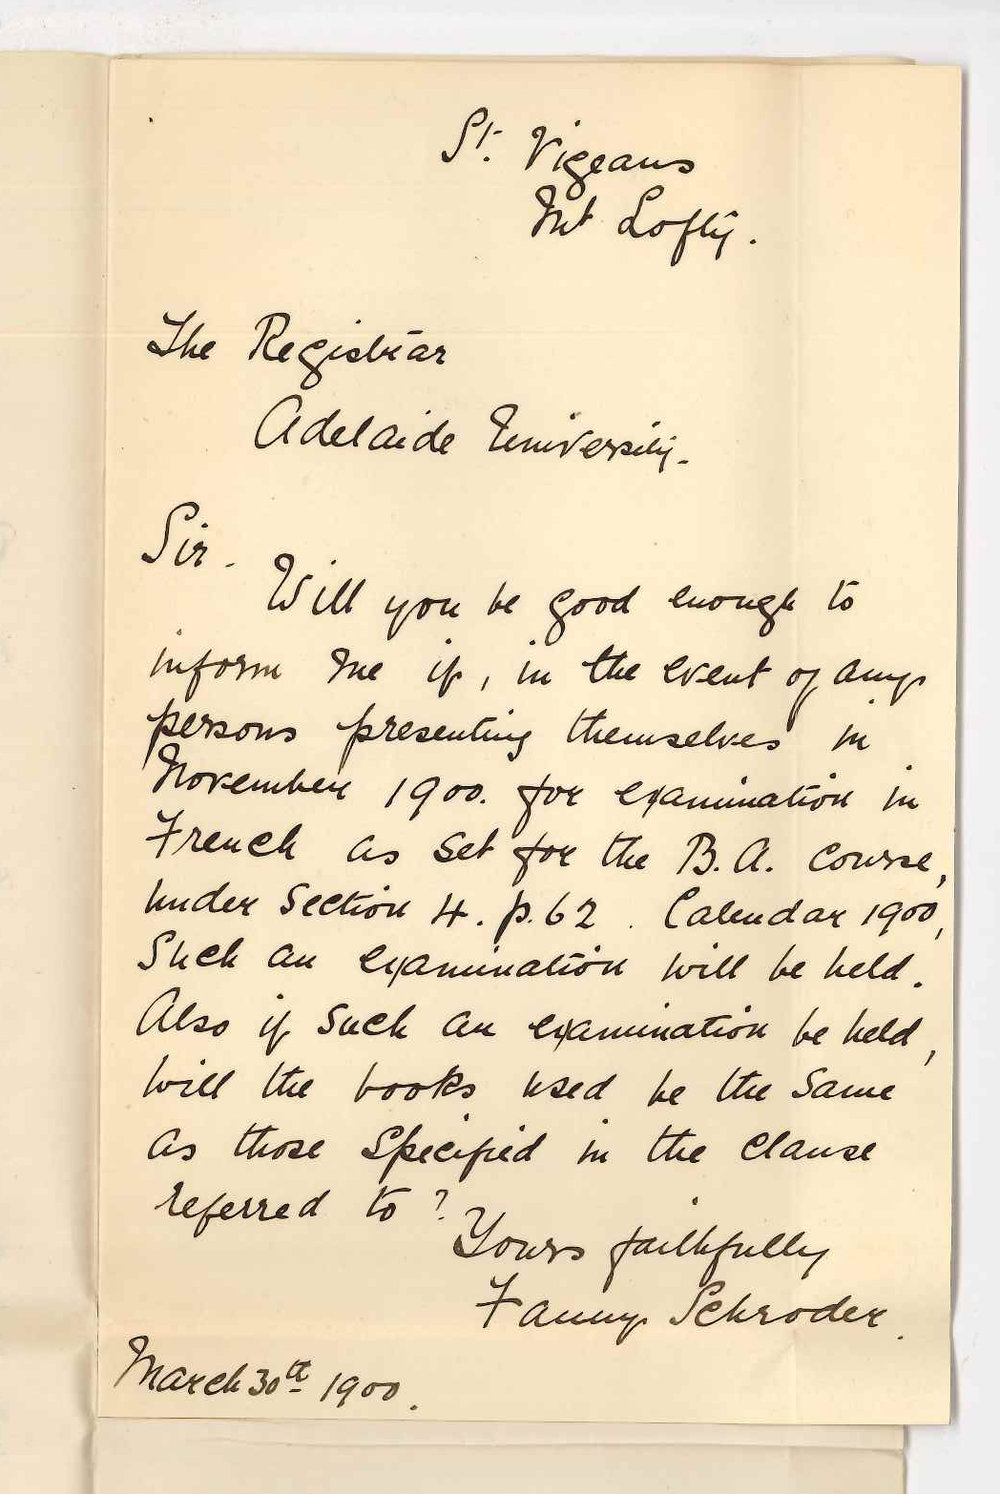 St. Vigeans
Mt Lofty.
The Registrar
Adelaide University.
Sir.
Will you be good enough to
inform me if, in the event of any
persons presenting themselves in
November 1900. for examination in
French as set for the B.A. course,
under Section 4. p. 62. Calendar 1900,
Such an examination will be held.
Also if such an examination be held,
will the books used be the same
as those specified in the clause
referred to?
Yours faithfully
Fanny Schroder.
March 30th 1900.